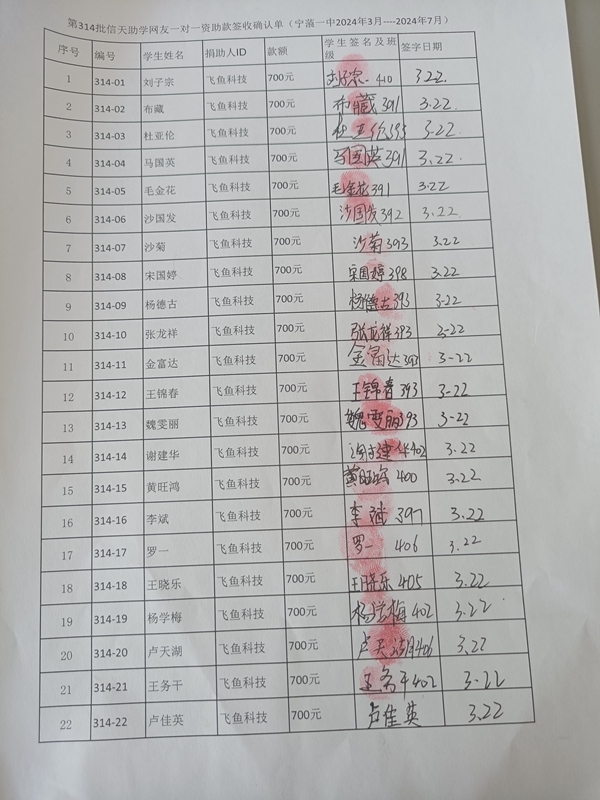 第314批信天助学网友一对一资助款签收确认单（宁蒗一中2024年3月----2024年7月）
序号 编号 学生姓名 捐助人ID 款额 学生签名及班级 签字日期
1 314-01 刘子宗 飞鱼科技 700元 刘子宗 410 3.22
2 314-02 布藏 飞鱼科技 700元 布藏 391 3.22
3 314-03 杜亚伦 飞鱼科技 700元 杜亚伦 393 3.22
4 314-04 马国英 飞鱼科技 700元 马国英 391 3.22
5 314-05 毛金花 飞鱼科技 700元 毛金花 391 3.22
6 314-06 沙国发 飞鱼科技 700元 沙国发 392 3.22
7 314-07 沙菊 飞鱼科技 700元 沙菊 393 3.22
8 314-08 宋国婷 飞鱼科技 700元 宋国婷 398 3.22
9 314-09 杨德古 飞鱼科技 700元 杨德古 393 3-22
10 314-10 张龙祥 飞鱼科技 700元 张龙祥 393 3-22
11 314-11 金富达 飞鱼科技 700元 金富达 393 3-22
12 314-12 王锦春 飞鱼科技 700元 王锦春 393 3-22
13 314-13 魏雯丽 飞鱼科技 700元 魏雯丽 393 3-22
14 314-14 谢建华 飞鱼科技 700元 谢建华 402 3.22
15 314-15 黄旺鸿 飞鱼科技 700元 黄旺鸿 400 3.22
16 314-16 李斌 飞鱼科技 700元 李斌 397 3.22
17 314-17 罗一 飞鱼科技 700元 罗一 406 3.22
18 314-18 王晓乐 飞鱼科技 700元 王晓乐 405 3.22
19 314-19 杨学梅 飞鱼科技 700元 杨学梅 402 3.22
20 314-20 卢天湖 飞鱼科技 700元 卢天湖 406 3.22
21 314-21 王务干 飞鱼科技 700元 王务干 402 3.22
22 314-22 卢佳英 飞鱼科技 700元 卢佳英 3.22